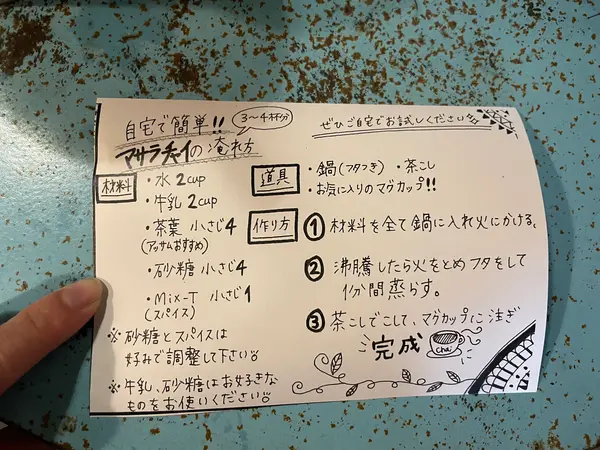 自宅で簡単!!
3〜4杯分
マサラチャイの淹れ方
ぜひご自宅でお試しください!!!
材料
・水 2cup
・牛乳 2cup
・茶葉 小さじ4
(アッサムおすすめ)
・砂糖 小さじ4
・Mix-T 小さじ1
(スパイス)
※砂糖とスパイスは
好みで調整して下さい
※牛乳、砂糖はお好きな
ものをお使いください
道具
・鍋(フタつき) ・茶こし
・お気に入りのマグカップ!!
作り方
① 材料を全て鍋に入れ火にかける。
② 沸騰したら火をとめフタをして
1分間蒸らす。
③ 茶こしでこして、マグカップに注ぎ
完成
chai